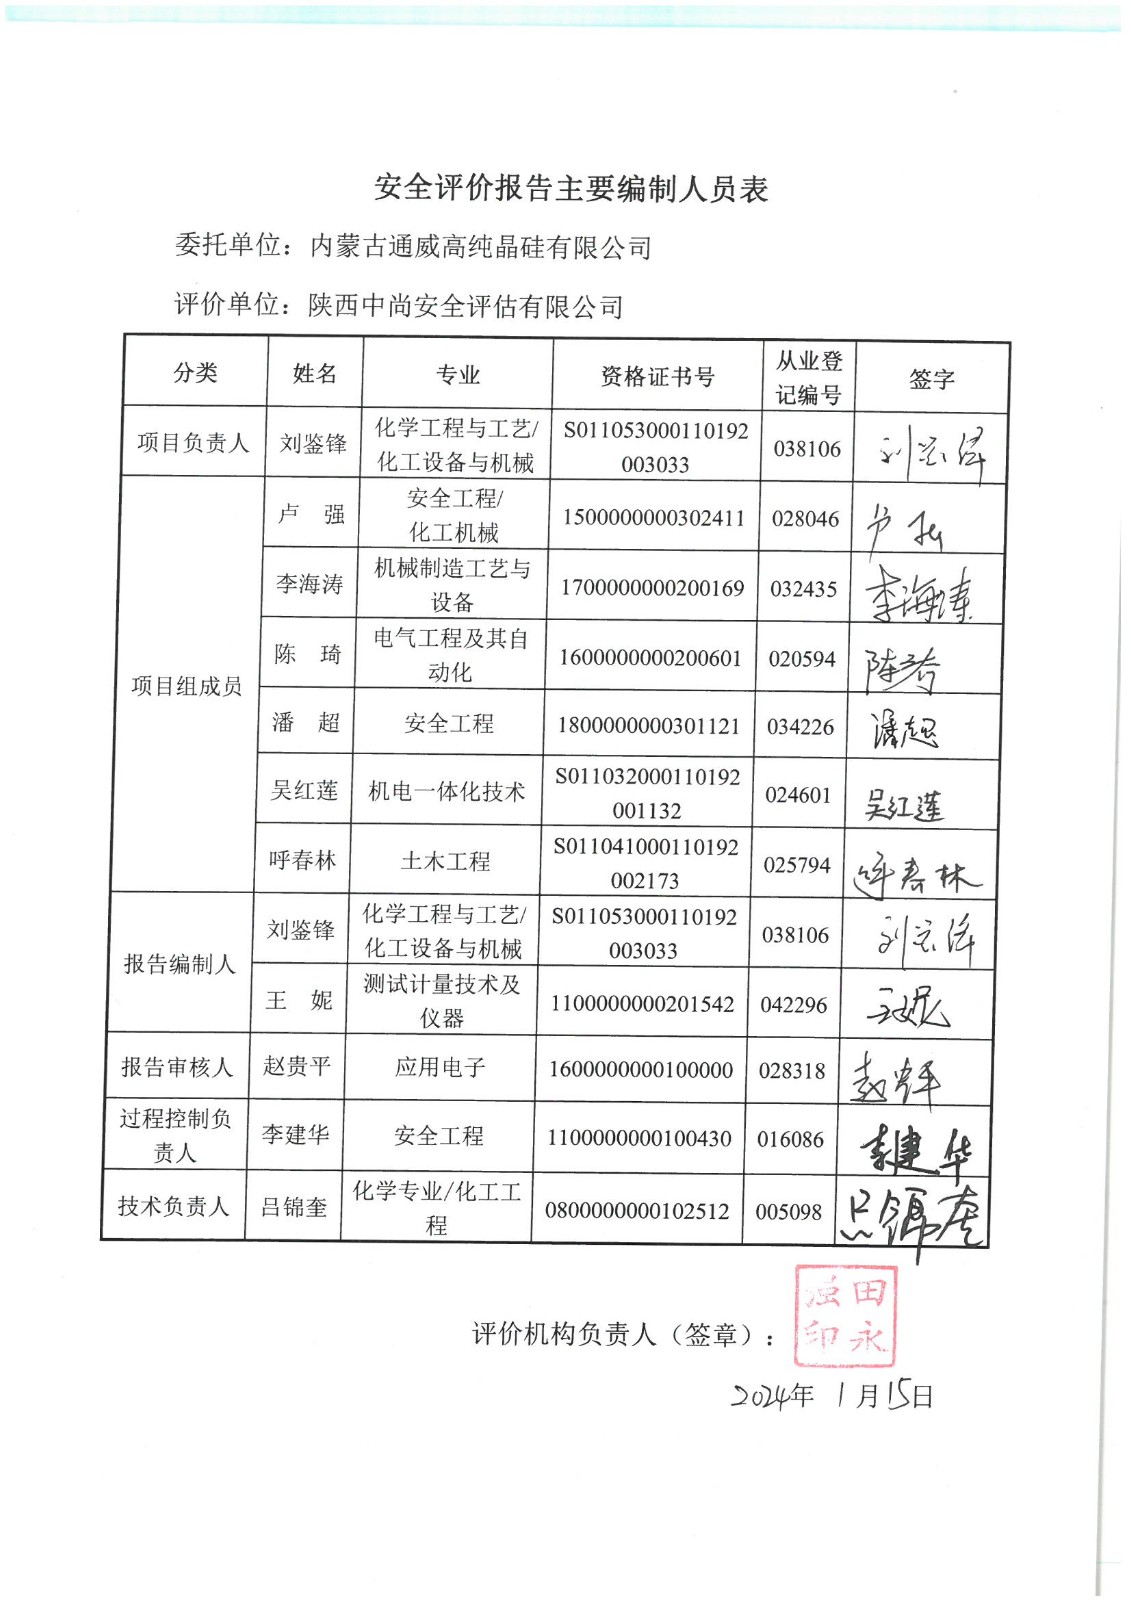 安全评价报告主要编制人员表
委托单位：内蒙古通威高纯晶硅有限公司
评价单位：陕西中尚安全评估有限公司
分类 姓名 专业 资格证书号 从业登记编号 签字
项目负责人 刘鉴锋 化学工程与工艺/化工设备与机械 S011053000110192003033 038106 刘鉴锋
项目组成员 卢 强 安全工程/化工机械 1500000000302411 028046 卢强
李海涛 机械制造工艺与设备 1700000000200169 032435 李海涛
陈 琦 电气工程及其自动化 1600000000200601 020594 陈琦
潘 超 安全工程 1800000000301121 034226 潘超
吴红莲 机电一体化技术 S011032000110192001132 024601 吴红莲
呼春林 土木工程 S011041000110192002173 025794 呼春林
报告编制人 刘鉴锋 化学工程与工艺/化工设备与机械 S011053000110192003033 038106 刘鉴锋
王 妮 测试计量技术及仪器 1100000000201542 042296 王妮
报告审核人 赵贵平 应用电子 1600000000100000 028318 赵贵平
过程控制负责人 李建华 安全工程 1100000000100430 016086 李建华
技术负责人 吕锦奎 化学专业/化工工程 0800000000102512 005098 吕锦奎
评价机构负责人（签章）：
田永强印
2024年 1月15日